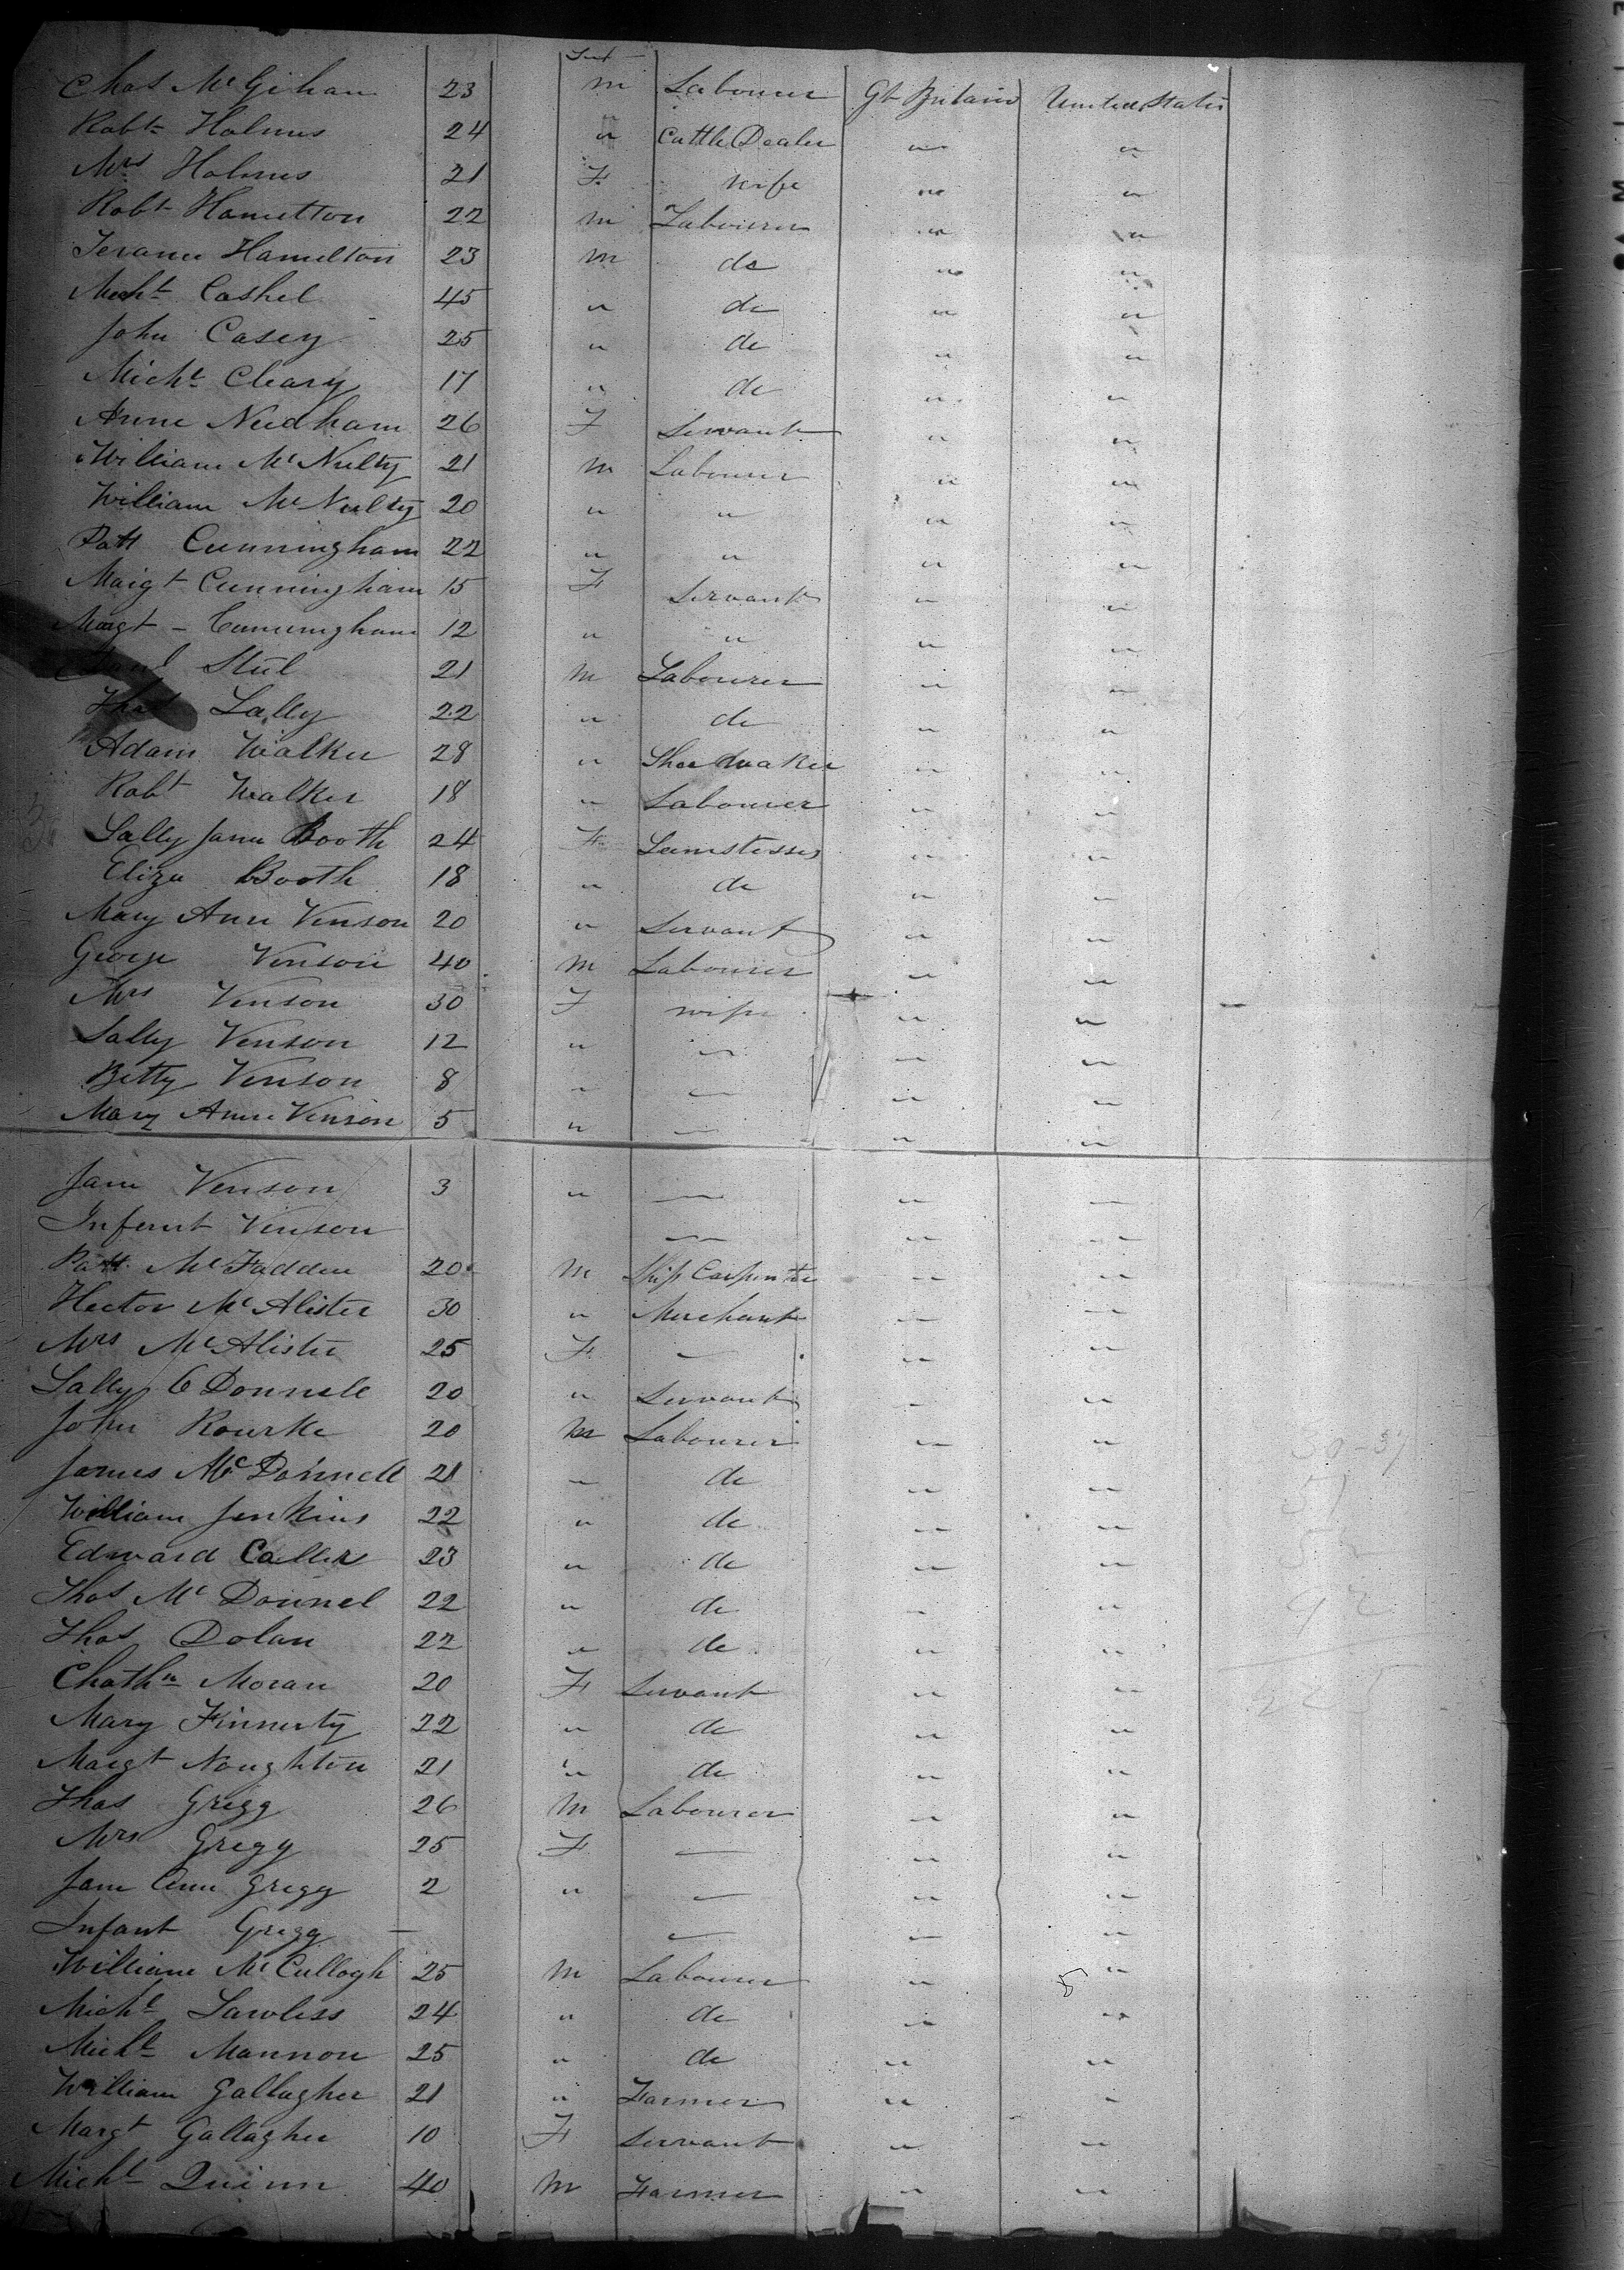 Chas McGihan 23 m Labourer Gt Britain United States
Robt Holmes 24 " Cattle Dealer " "
Mrs Holmes 21 F wife " "
Robt Hamilton 22 m Labourer " "
Hamelton 23 m do " "
Michl Cashel 45 " do " "
John Casey 25 " do " "
Michl Cleary 17 " do " "
Anne Needham 26 F Servant " "
William McNulty 21 m Labourer " "
William McNulty 20 " " " "
Patt Cunningham 22 " " " "
Margt Cunningham 15 F Servant " "
Margt - Cunningham 12 " " " "
21 m Labourer " "
Thos Lally 22 " do " "
Adam Walker 28 " Shoe Maker " "
Robt Walker 18 " Labourer " "
Sally Jane Booth 24 F Seamstress " "
Eliza Booth 18 " do " "
Mary Ann Venson 20 " Servant " "
George Venson 40 M Labourer " "
Mrs Venson 30 F wife " "
Sally Venson 12 " — " "
Betty Venson 8 " — " "
Mary Anne Venson 5 " — " "
Jane Venson 3 " — " "
Infant Venson — " "
Patt McFadden 20 M Ship Carpenter " "
Hector McAlister 30 " Merchant " "
Mrs McAlister 25 F — " "
Sally O Donnell 20 " Servant " "
John Rourke 20 M Labourer " "
James McDonnell 21 " do " "
William Jenkins 22 " do " "
Edward 23 " do " "
Thos McDonnel 22 " do " "
Thos Dolan 22 " do " "
Chathn Moran 20 F Servant " "
Mary Finnerty 22 " do " "
Margt Noughton 21 " do " "
Thos Gregg 26 M Labourer " "
Mrs Gregg 25 F — " "
Jane Ann Gregg 2 " — " "
Infant Gregg — — " "
William McCullogh 25 M Labourer " "
Michl Lawless 24 " do " "
Michl Mannon 25 " do " "
William Gallagher 21 " Farmer " "
Margt Gallagher 10 F Servant " "
Michl Quinn 40 M Farmer " "